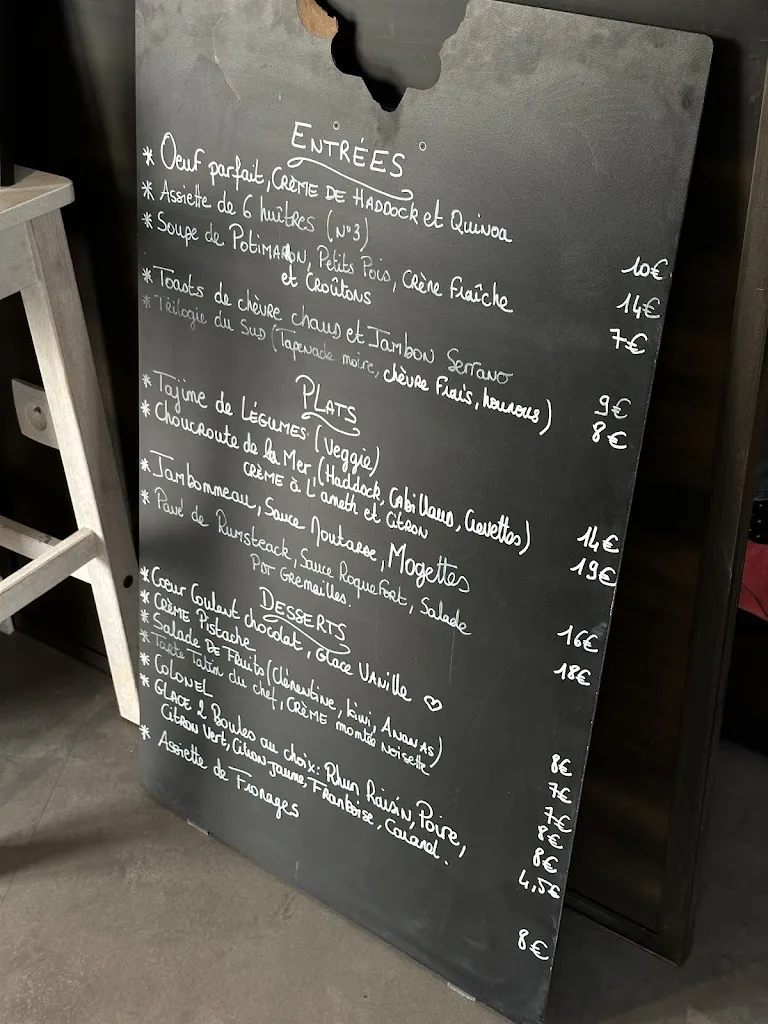 ENTRÉES
* Oeuf parfait, CRÈME DE HADDOCK et Quinoa 10€
* Assiette de 6 huîtres (N°3) 14€
* Soupe de POTIMARON, Petits Pois, CRÈME FRAÎCHE 7€
et CROÛTONS
* Toasts de chèvre chaud et JAMBON SERRANO 9€
* Trilogie du SUD (Tapenade noire, chèvre Frais, houmous) 8€
PLATS
* Tajine de LÉGUMES (Veggie) 14€
* Choucroute de la Mer (Haddock, CABILLAUD, Crevettes) 19€
CRÈME à L'aneth et CITRON
* Jambonneau, Sauce MOUTARDE, Mogettes 16€
* Pavé de Rumsteack, Sauce Roquefort, Salade 18€
POT Grenailles.
DESSERTS
* Coeur Coulant chocolat, Glace VANILLE ♡ 8€
* CRÈME Pistache 7€
* Salade DE FRuits (Clémentine, kiwi, ANANAS) 7€
* Tarte Tatin du chef, CRÈME montée NOISETTE 8€
* COLONEL 8€
* GLACE 2 Boules au choix: Rhum Raisin, Poire, 4,5€
Citron Vert, Citron Jaune, Framboise, Caramel.
* Assiette de Fromages 8€